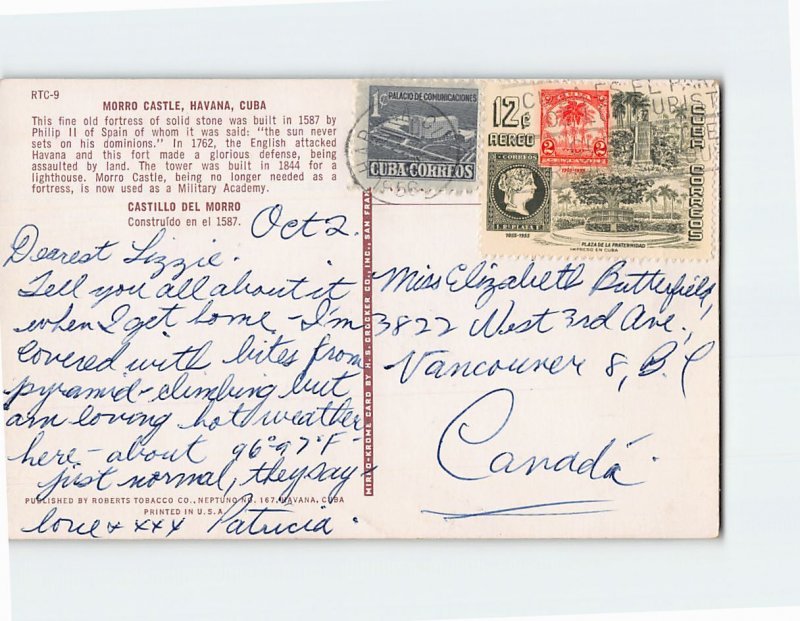 RTC-9
MORRO CASTLE, HAVANA, CUBA
This fine old fortress of solid stone was built in 1587 by
Philip II of Spain of whom it was said: "the sun never
sets on his dominions." In 1762, the English attacked
Havana and this fort made a glorious defense, being
assaulted by land. The tower was built in 1844 for a
lighthouse. Morro Castle, being no longer needed as a
fortress, is now used as a Military Academy.
CASTILLO DEL MORRO
Construído en el 1587.
Oct 2.
Dearest Lizzie.
Tell you all about it
when I get home - I'm
covered with bites from
pyramid-climbing but
am loving hot weather
here - about 96°-97°F -
just normal, they say -
love & xxx Patricia.
PUBLISHED BY ROBERTS TOBACCO CO., NEPTUNO NO. 167, HAVANA, CUBA
PRINTED IN U.S.A.
MIRRO-KROME CARD BY H. S. CROCKER CO., INC., SAN FRAN
1¢ PALACIO DE COMUNICACIONES
CUBA CORREOS
12¢
AEREO
2 2
1905-1955
CORREOS
1 R. PLATA F.
1855-1955
PLAZA DE LA FRATERNIDAD
IMPRESO EN CUBA
CUBA CORREOS
Miss Elizabeth Butterfield,
3822 West 3rd Ave.,
Vancouver 8, B.C
Canadá.